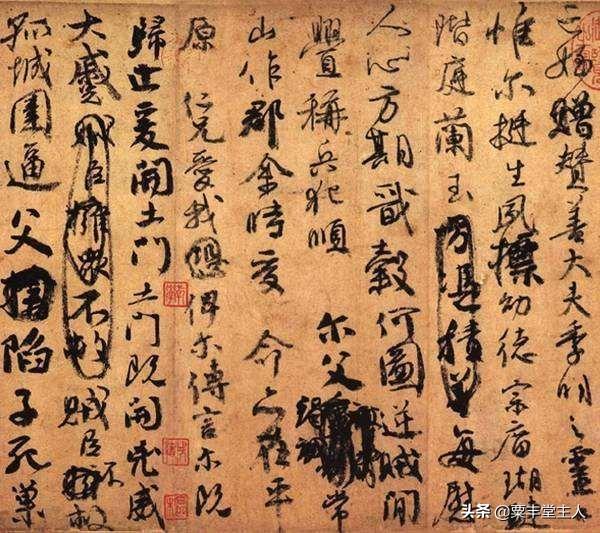 亡姪贈贊善大夫季明之靈
惟尔挺生夙標幼德宗廟瑚璉
階庭蘭玉方憑積善每慰
人心方期戩穀何圖逆賊閒
釁稱兵犯順 尔父竭誠常
山作郡余時受命亦在平
原仁兄愛我俾尔傳言尔既
歸止爰開土門土門既開凶威
大蹙賊臣擁衆不救賊臣不救
孤城圍逼父陷子死巢
头条 @粟丰堂主人